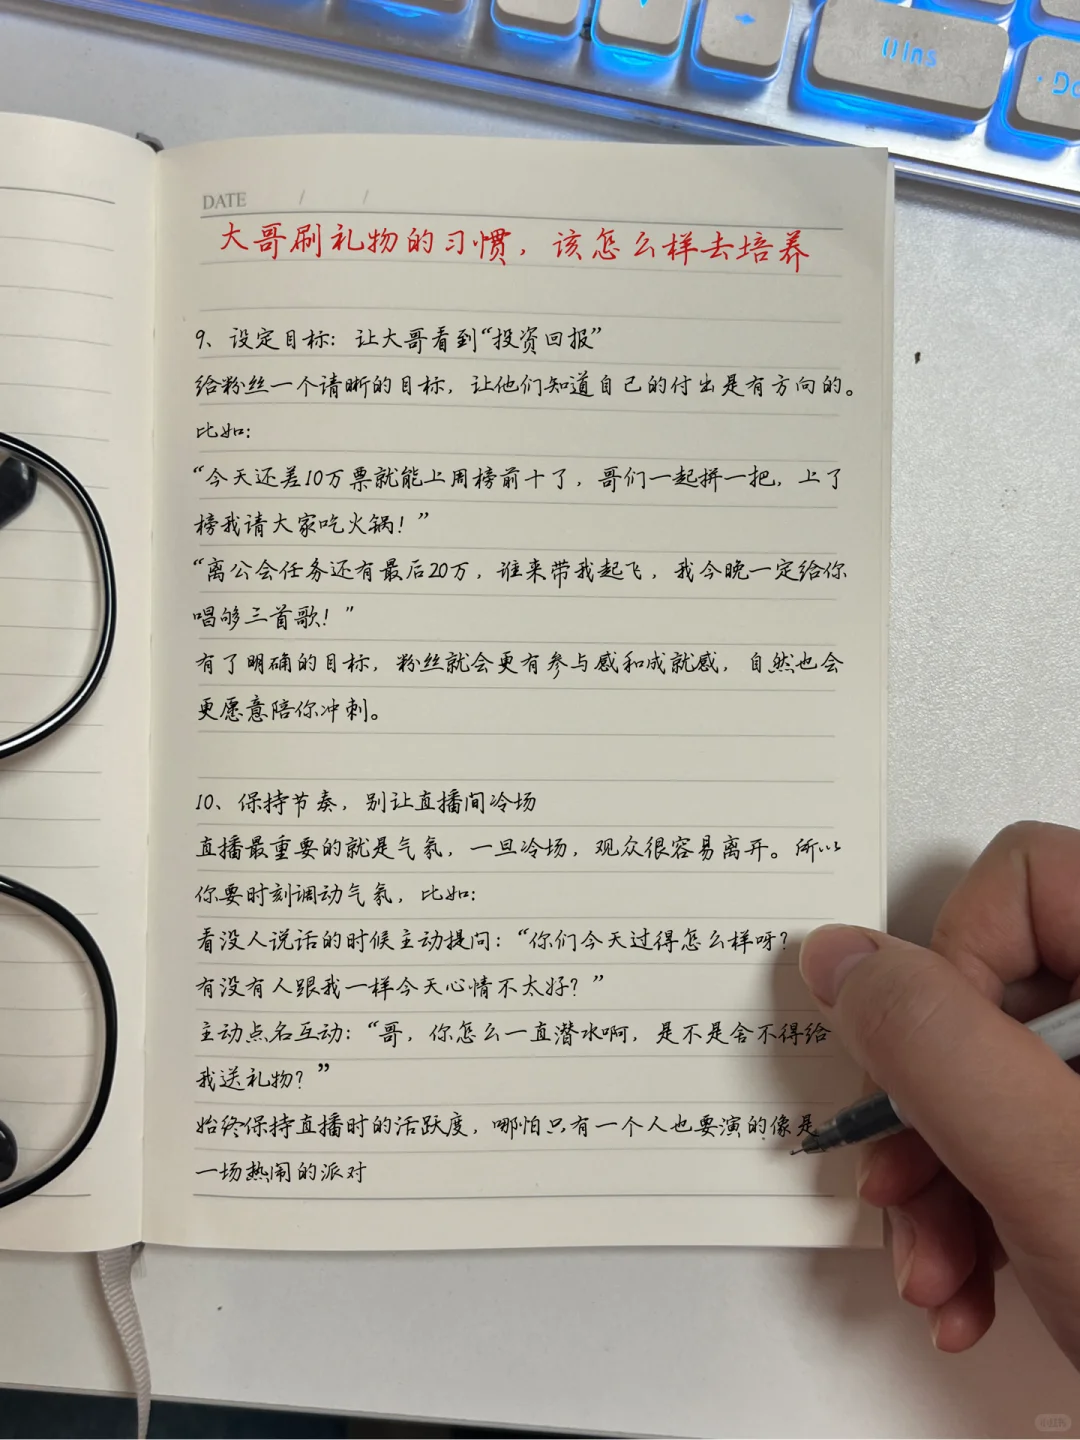 Ins
DATE / /
大哥刷礼物的习惯，该怎么样去培养
9、设定目标：让大哥看到“投资回报”
给粉丝一个清晰的目标，让他们知道自己的付出是有方向的。
比如：
“今天还差10万票就能上周榜前十了，哥们一起拼一把，上了
榜我请大家吃火锅！”
“离公会任务还有最后20万，谁来带我起飞，我今晚一定给你
唱够三首歌！”
有了明确的目标，粉丝就会更有参与感和成就感，自然也会
更愿意陪你冲刺。
10、保持节奏，别让直播间冷场
直播最重要的就是气氛，一旦冷场，观众很容易离开。所以
你要时刻调动气氛，比如：
看没人说话的时候主动提问：“你们今天过得怎么样呀？
有没有人跟我一样今天心情不太好？”
主动点名互动：“哥，你怎么一直潜水啊，是不是舍不得给
我送礼物？”
始终保持直播时的活跃度，哪怕只有一个人也要演的像是
一场热闹的派对